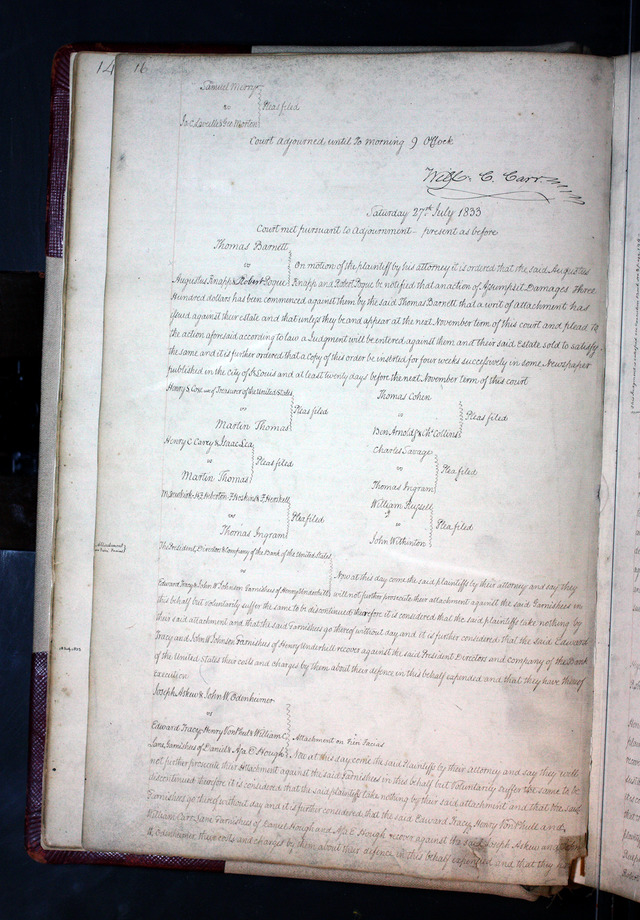 14 16
Samuel Merry
vs } Pleas filed
Ja C. Lavelle & Geo Morton
Court adjourned until to morning 9 O'Clock
Will. C. Carr
Saturday 27th July 1833
Court met pursuant to adjournment - present as before
Thomas Barnett
vs } On motion of the plaintiff by his attorney it is ordered that the said Augustus
Augustus Knapp & Robert Pogue } Knapp and Robert Pogue be notified that an action of Assumpsit, Damages Three
Hundred dollars has been commenced against them by the said Thomas Barnett that a writ of attachment has
issued against their estate and that unless they be and appear at the next November term of this court and plead to
the action aforesaid according to law a Judgment will be entered against them and their said Estate sold to satisfy
the same and it is further ordered that a Copy of this order be inserted for four weeks successively in some Newspaper
published in the City of St Louis and at least twenty days before the next November term of this court
Henry & Treasurer of the United States
vs } Pleas filed
Martin Thomas
Thomas Cohen
vs } Pleas filed
Ben Arnold & Chs Collins
Henry C. Carey & Isaac Lea
vs } Pleas filed
Martin Thomas
Charles Savage
vs } Plea filed
Thomas Ingram
Hoskins & F Heiskell
vs } Plea filed
Thomas Ingram
William Russell
vs } Plea filed
John Wilkinton
Attachment
on Fieri Facias
The President, Directors & Company of the Bank of the United States
vs } Now at this day come the said plaintiffs by their attorney and say they
Edward Tracy & John W Johnson Garnishees of Henry Underhill } will not further prosecute their attachment against the said Garnishees in
this behalf but voluntarily suffer the same to be discontinued therefore it is considered that the said plaintiffs take nothing by
their said attachment and that the said Garnishees go thereof without day and it is further considered that the said Edward
Tracy and John W Johnson Garnishees of Henry Underhill recover against the said President Directors and Company of the Bank
of the United States their costs and charges by them about their defence in this behalf expended and that they have thereof
execution
Joseph Askew & John W. Odenheimer
vs } Attachment on Fieri Facias
Edward Tracy Henry Von Phul & William C.
Lane, Garnishees of Daniel & Asa E Hough } Now at this day come the said Plaintiffs by their attorney and say they will
not further prosecute their attachment against the said Garnishees in this behalf but Voluntarily suffer the same to be
discontinued therefore it is considered that the said plaintiffs take nothing by their said attachment and that the said
Garnishees go thereof without day and it is further considered that the said Edward Tracy, Henry Von Phul and
William Carr Lane Garnishees of Daniel Hough and Asa E Hough recover against the said Joseph Askew and John
W Odenheimer their costs and charges by them about their defence in this behalf expended and that they have